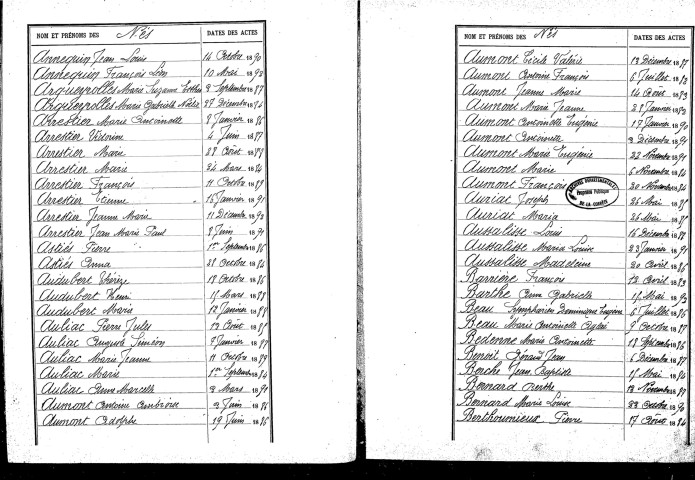 NOM ET PRÉNOMS DES Nés DATES DES ACTES
Annequin Jean Louis 14 Octobre 1890
Annequin François Léon 10 Mai 1892
Argueyrolles Marie Suzanne 3 Septembre 1887
Argueyrolles Marie Gabrielle 28 Décembre 1884
Arrestier Marie Antoinette 8 Janvier 1886
Arrestier Victorine 4 Juin 1887
Arrestier Marie 28 Août 1887
Arrestier Marie 24 Mars 1884
Arrestier François 11 Octobre 1889
Arrestier Etienne 15 Janvier 1891
Arrestier Jeanne Marie 11 Décembre 1892
Arrestier Jean Marie Paul 8 Juin 1891
Astiés Pierre 1er Septembre 1886
Astiés Anna 28 Octobre 1886
Audubert Thérèze 18 Octobre 1886
Audubert Henri 15 Mars 1888
Audubert Marie 12 Janvier 1888
Auliac Pierre Jules 12 Août 1885
Auliac Auguste Siméon 9 Janvier 1887
Auliac Marie Jeanne 11 Octobre 1889
Auliac Marie 1er Septembre 1884
Auliac Anne Marcelle 2 Mars 1890
Aumont Antoine Ambroise 2 Juin 1886
Aumont Adolphe 19 Juin 1886
NOM ET PRÉNOMS DES Nés DATES DES ACTES
Aumont Cécile Valérie 13 Décembre 1887
Aumont Antoine François 6 Juillet 1883
Aumont Jeanne Marie 14 Août 1883
Aumont Marie Jeanne 28 Janvier 1883
Aumont Antoinette Eugénie 17 Janvier 1890
Aumont Antoinette 3 Décembre 1891
Aumont Marie Eugénie 22 Novembre 1891
Aumont Marie 6 Novembre 1884
Aumont François 20 Novembre 1884
Auriat Joseph 26 Mai 1885
Auriat Maria 26 Mai 1885
Aussalisse Louis 16 Décembre 1887
Aussalisse Maria Louise 23 Janvier 1891
Aussalisse Madeleine 20 Avril 1886
Barrière François 12 Avril 1883
Barthe Anne Gabrielle 15 Mai 1892
Beau Symphorien Dominique Eugène 6 Juillet 1886
Beau Marie Antoinette 9 Octobre 1887
Bedenne Marie Antoinette 18 Septembre 1886
Benoit Géraud Jean 6 Décembre 1887
Berche Jean Baptiste 15 Mai 1884
Bernard Berthe 12 Novembre 1888
Bernard Marie Louise 22 Octobre 1890
Berthoumieux Pierre 17 Août 1884
ARCHIVES DÉPARTEMENTALES
Propriété Publique
DE LA CORRÈZE